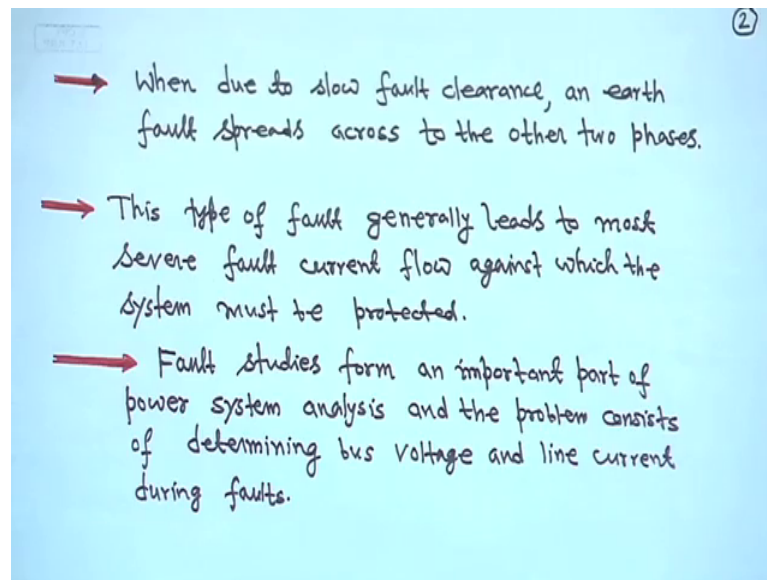 2
When due to slow fault clearance, an earth
fault spreads across to the other two phases.
This type of fault generally leads to most
severe fault current flow against which the
system must be protected.
Fault studies form an important part of
power system analysis and the problem consists
of determining bus voltage and line current
during faults.